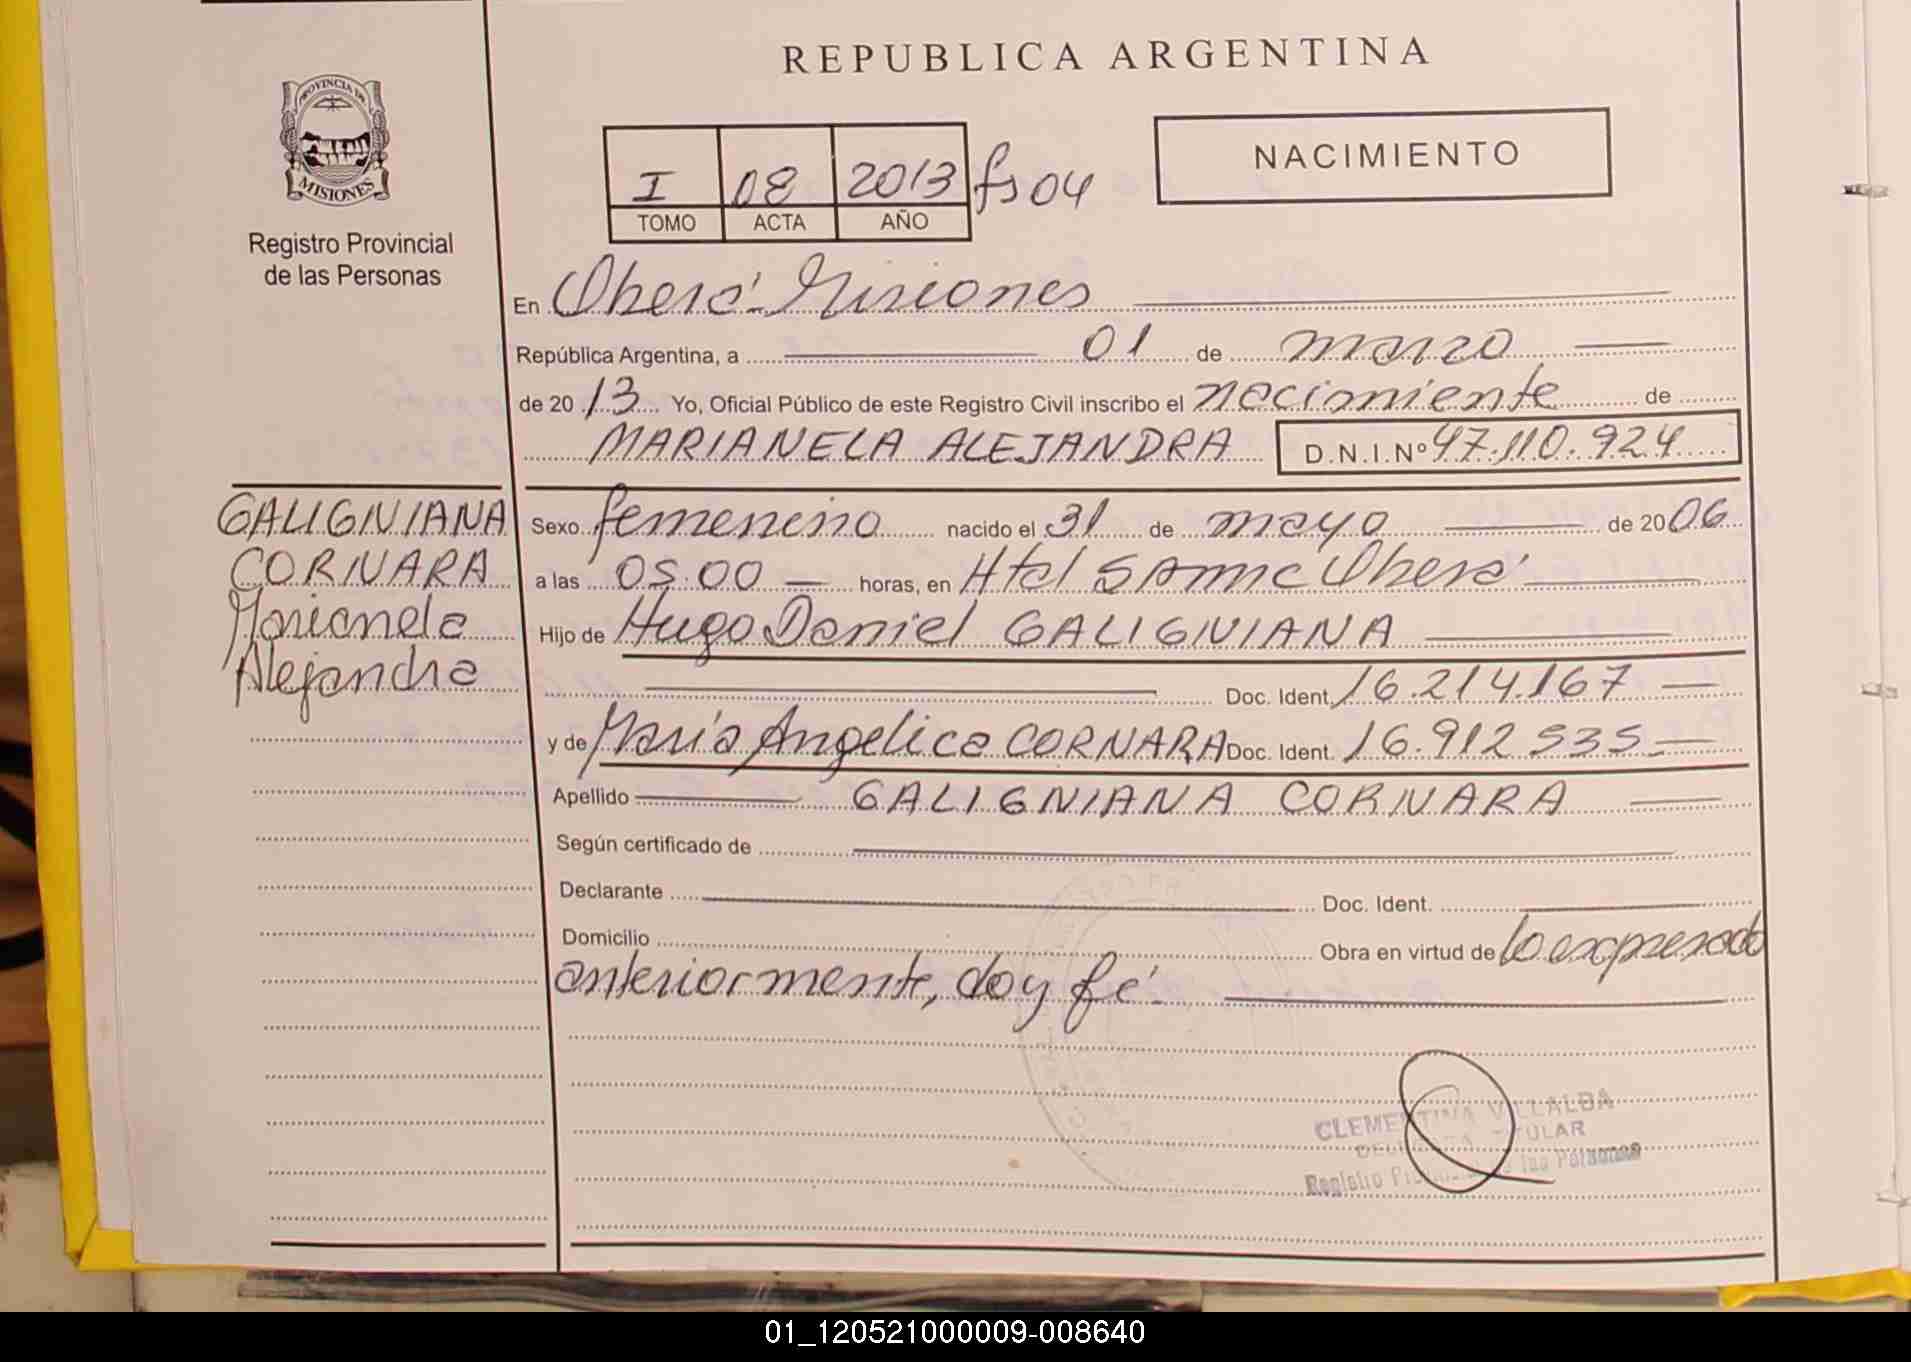 REPUBLICA ARGENTINA
PROVINCIA DE
MISIONES
Registro Provincial
de las Personas
NACIMIENTO
I 08 2013 fs 04
TOMO ACTA AÑO
En Oberá - Misiones
República Argentina, a 01 de marzo
de 2013 Yo, Oficial Público de este Registro Civil inscribo el nacimiento de
MARIANELA ALEJANDRA D.N.I.Nº 47.110.924
GALIGNIANA
CORNARA
Marianela
Alejandra
Sexo femenino nacido el 31 de mayo de 2006
a las 05:00 horas, en Htal SAMIC Oberá
Hijo de Hugo Daniel GALIGNIANA
Doc. Ident. 16.214.167
y de María Angelica CORNARA Doc. Ident. 16.912.535
Apellido GALIGNIANA CORNARA
Según certificado de
Declarante Doc. Ident.
Domicilio Obra en virtud de lo expresado
anteriormente, doy fé.
CLEMENTINA VILLALBA
DELEGADA TITULAR
Registro Provincial de las Personas
01_120521000009-008640